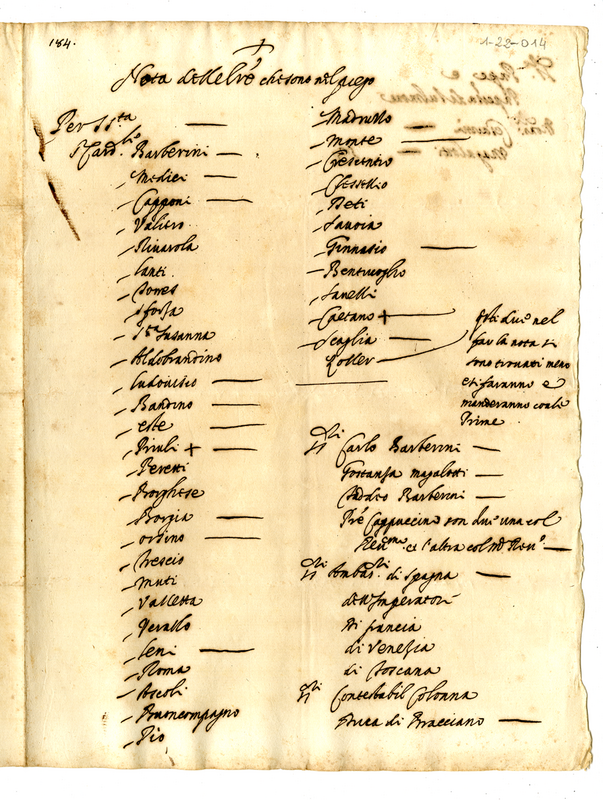 184.
1-22-014
Nota delle lrẽ che sono nel piego
Per S. Sta
SS. Card.li Barberini
Medici
Capponi
Valiero
Rivarola
Lanti
Torres
Sforza
Sta Susanna
Aldobrandino
Ludovisio
Bandino
este
Priuli +
Peretti
Borghese
Borgia
orsino
Trescio
Muti
Valletta
Verallo
Leni
Roma
Ascoli
Buoncompagno
Pio
Madruzzo
Monte
Crescentio
Clesselio
Deti
Savoia
Ginnasio
Bentivoglio
Zanelli
Caetano +
Scaglia
Zoller
Qsti duoi nel
far la nota si
sono trovati meno
et si faranno e
manderanno con le
Prime
Carlo Barberini
Costanza Magalotti
Barberini
Prẽ Cappuccino son due una col
Reu.mo et l'altra col Mto Reu.o
Ambas.ri di Spagna
dell'Imperatore
di francia
di Venetia
di Toscana
Contestabil Colonna
Duca di Bracciano